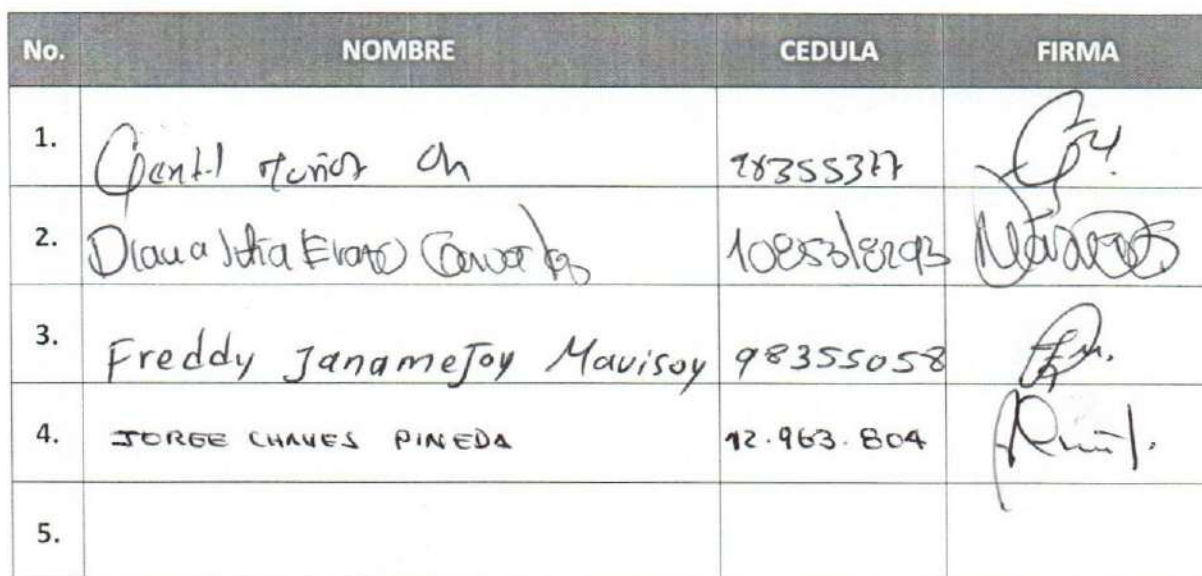 No. NOMBRE CEDULA FIRMA
1. Gentil Muñoz Ch 98355377
2. Diana 1085318293
3. Freddy Janamejoy Mavisoy 98355058
4. JORGE CHAVES PINEDA 12.963.804
5.